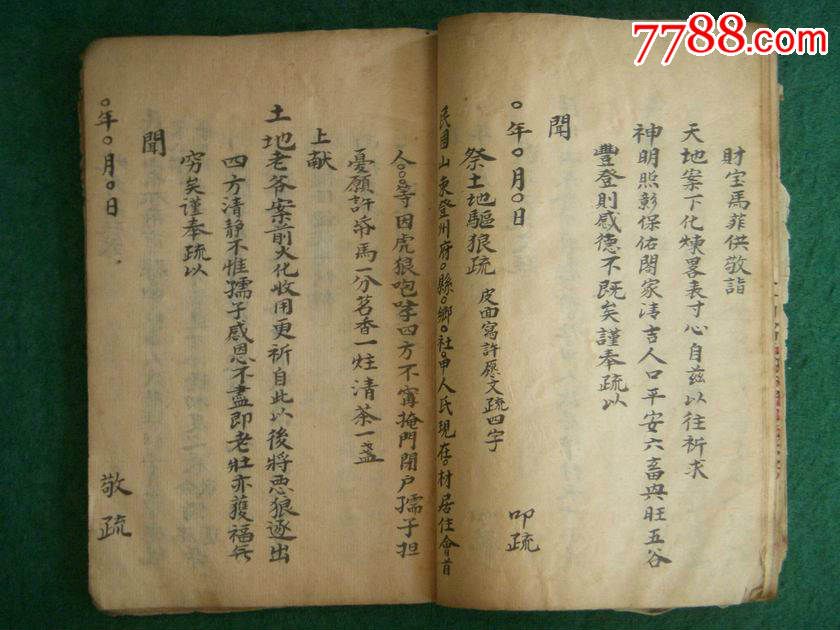 7788.com
財宝馬菲供敬詣
天地案下化煉畧表寸心自茲以往祈求
神明照彰保佑閤家清吉人口平安六畜興旺五谷
豐登則感德不既矣謹奉疏以
聞
〇年〇月〇日 叩疏
祭土地驅狼疏 皮面寫許愿文疏四字
民国山東登州府〇縣〇鄉〇社〇甲人氏現在〇村居住會首
仝〇〇等因虎狼咆哮四方不寧掩門閉户孺子担
憂願許帋馬一分茗香一炷清茶一盞
上献
土地老爷案前火化收用更祈自此以後將恶狼逐出
四方清静不惟孺子感恩不盡即老壯亦獲福無
穷矣謹奉疏以
聞
〇年〇月〇日 敬疏